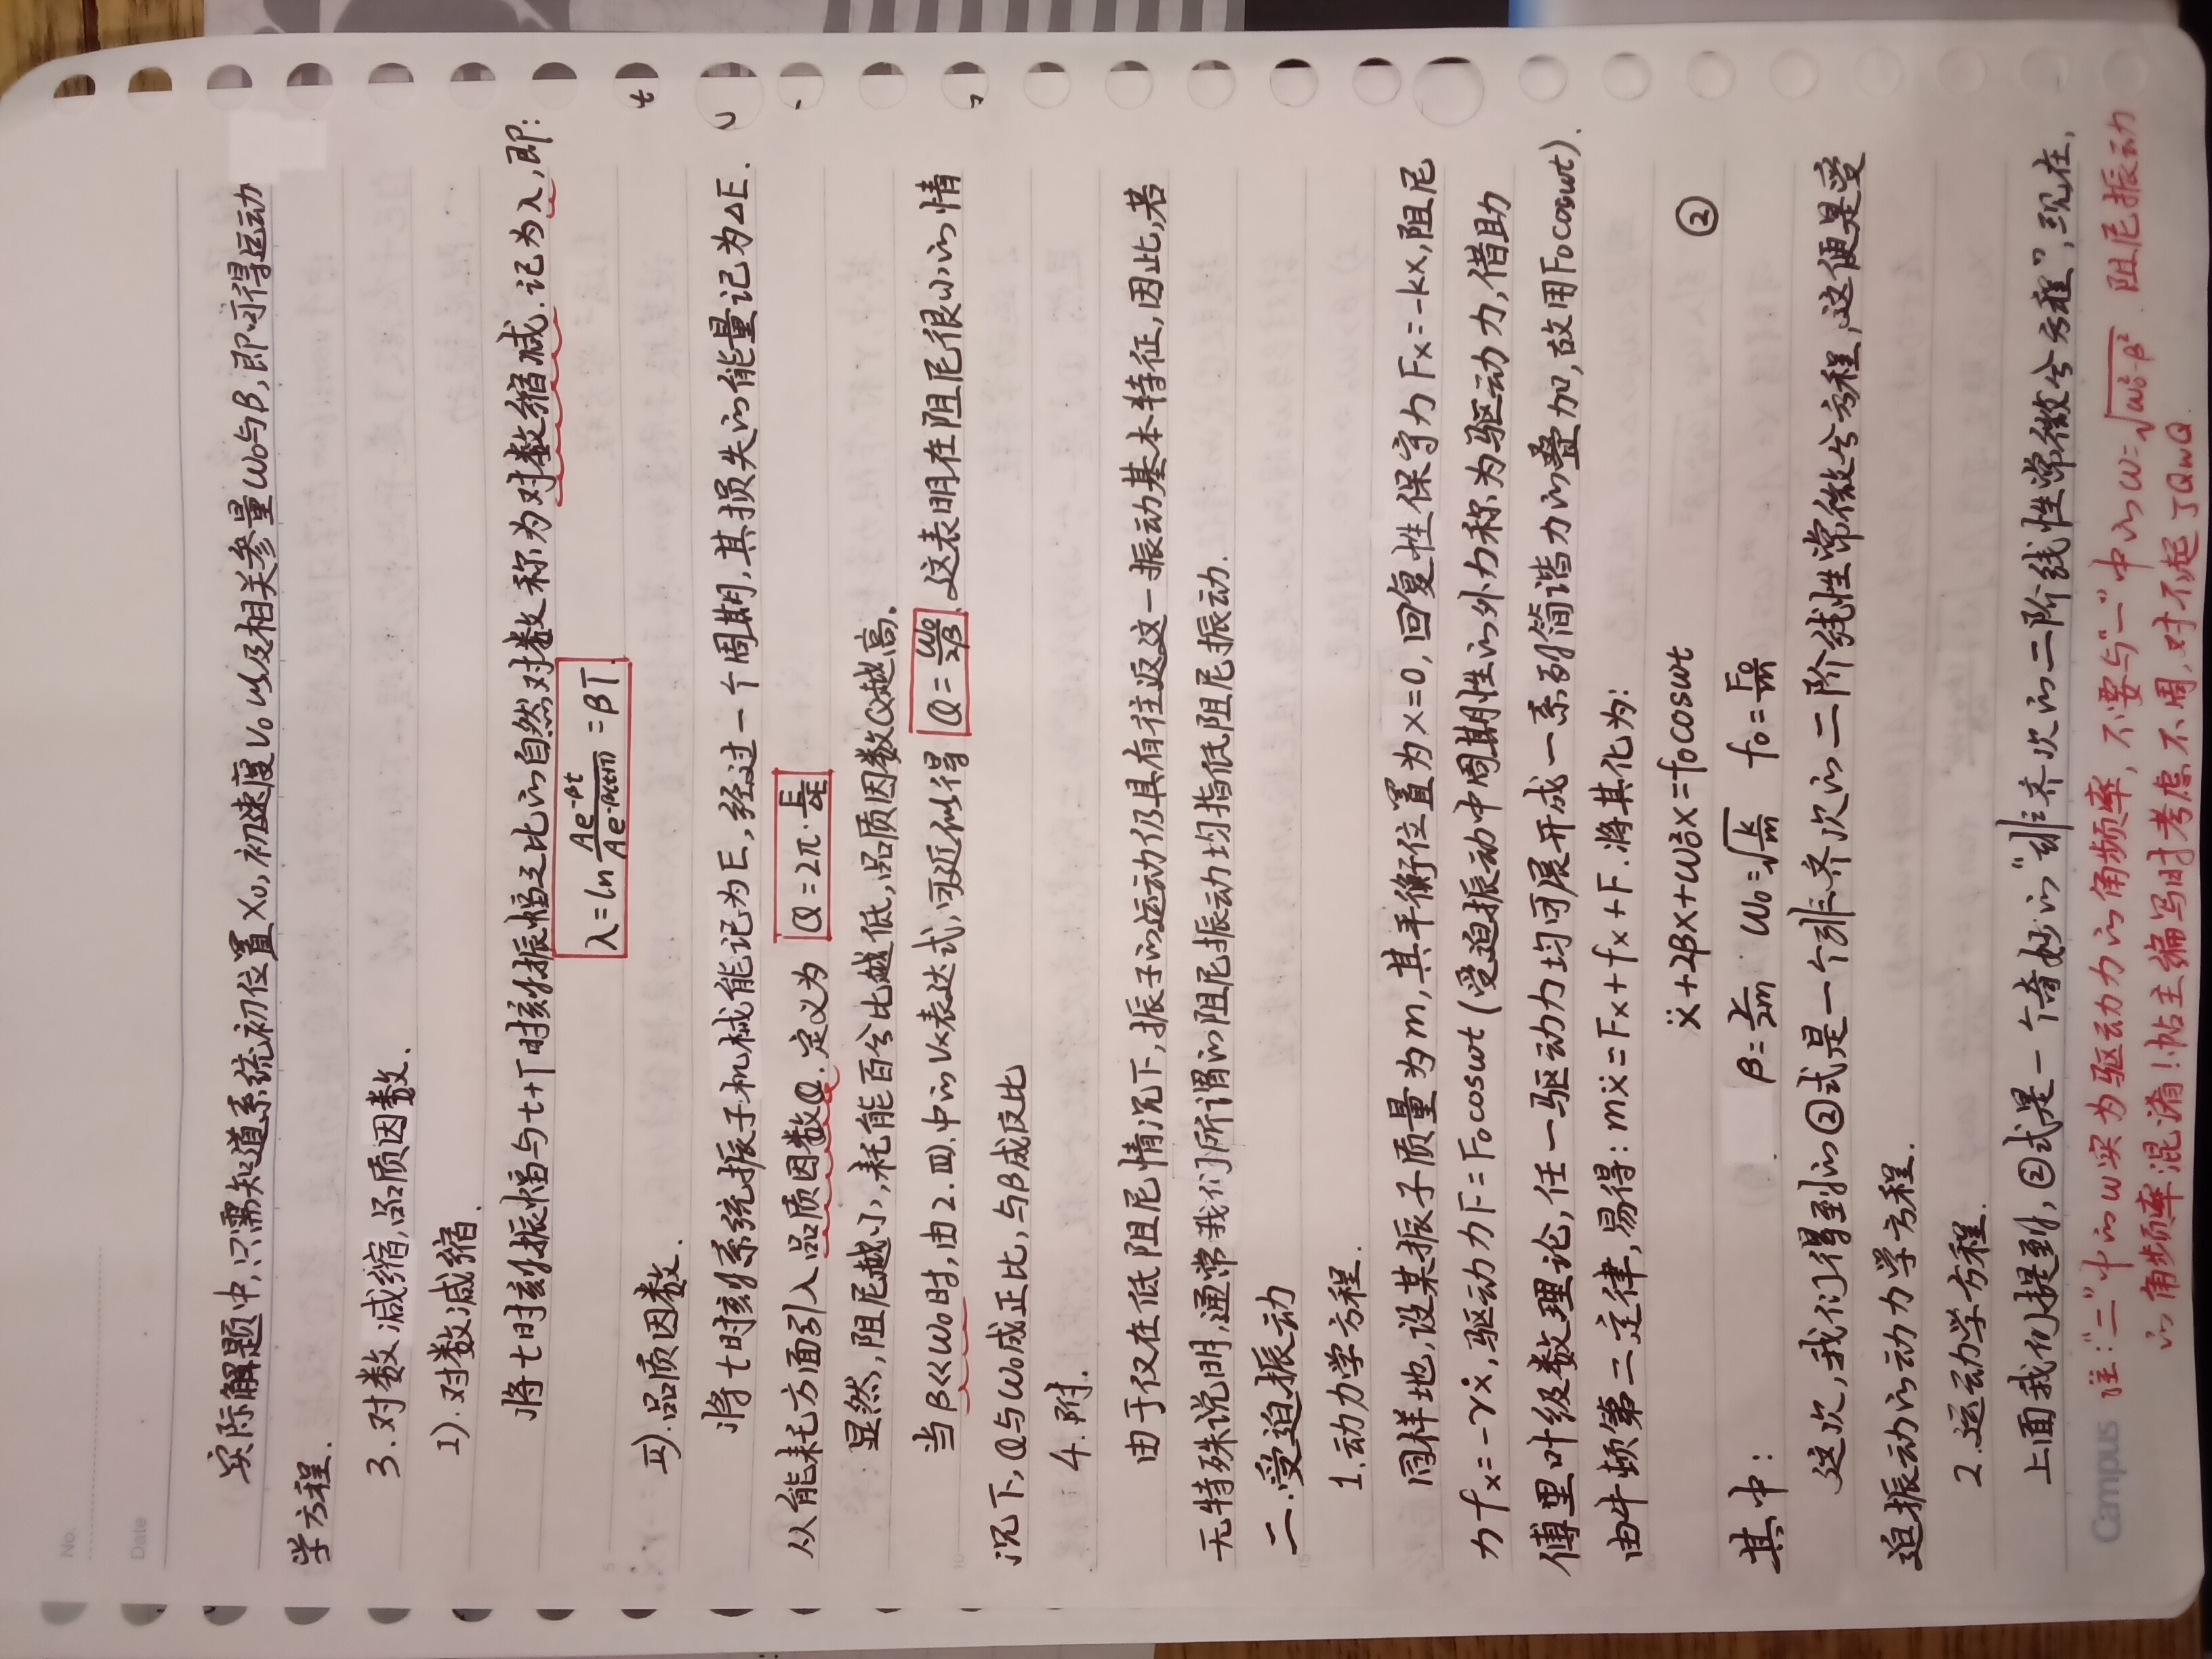 No.
Date
实际解题中,只需知道系统初位置x₀,初速度v₀以及相关参量ω₀与β,即可得运动
学方程.
3.对数减缩,品质因数.
I).对数减缩.
将t时刻振幅与t+T时刻振幅之比的自然对数称为对数缩减.记为λ,即:
λ=ln Ae^-βt/Ae^-β(t+T) =βT.
II).品质因数.
将t时刻系统振子机械能记为E,经过一个周期,其损失的能量记为ΔE.
从能耗方面引入品质因数Q.定义为 Q=2π·E/ΔE
显然,阻尼越小,耗能百分比越低,品质因数Q越高.
当β<<ω₀时,由2.III).中的Vx表达式,可近似得 Q=ω₀/2β .这表明在阻尼很小的情
况下,Q与ω₀成正比,与β成反比
4.附.
由于仅在低阻尼情况下,振子的运动仍具有往返这一振动基本特征,因此,若
无特殊说明,通常我们所谓的阻尼振动均指低阻尼振动.
二.受迫振动
1.动力学方程.
同样地,设某振子质量为m,其平衡位置为x=0,回复性保守力Fx=-kx,阻尼
力fx=-γẋ,驱动力F=F₀cosωt(受迫振动中周期性的外力称为驱动力,借助
傅里叶级数理论,任一驱动力均可展开成一系列简谐力的叠加,故用F₀cosωt).
由牛顿第二定律,易得:mẍ=Fx+fx+F.将其化为:
ẍ+2βẋ+ω₀²x=f₀cosωt ②
其中: β=γ/2m ω₀=√k/m f₀=F₀/m
这次,我们得到的②式是一个非齐次的二阶线性常微分方程,这便是受
迫振动的动力学方程.
2.运动学方程.
上面我们提到,②式是一个奇妙的“非齐次的二阶线性常微分方程”,现在,
Campus 注:“二”中的ω实为驱动力的角频率,不要与“一”中的ω=√ω₀²-β² 阻尼振动
的角频率混淆!帖主编写时考虑不周,对不起了QwQ